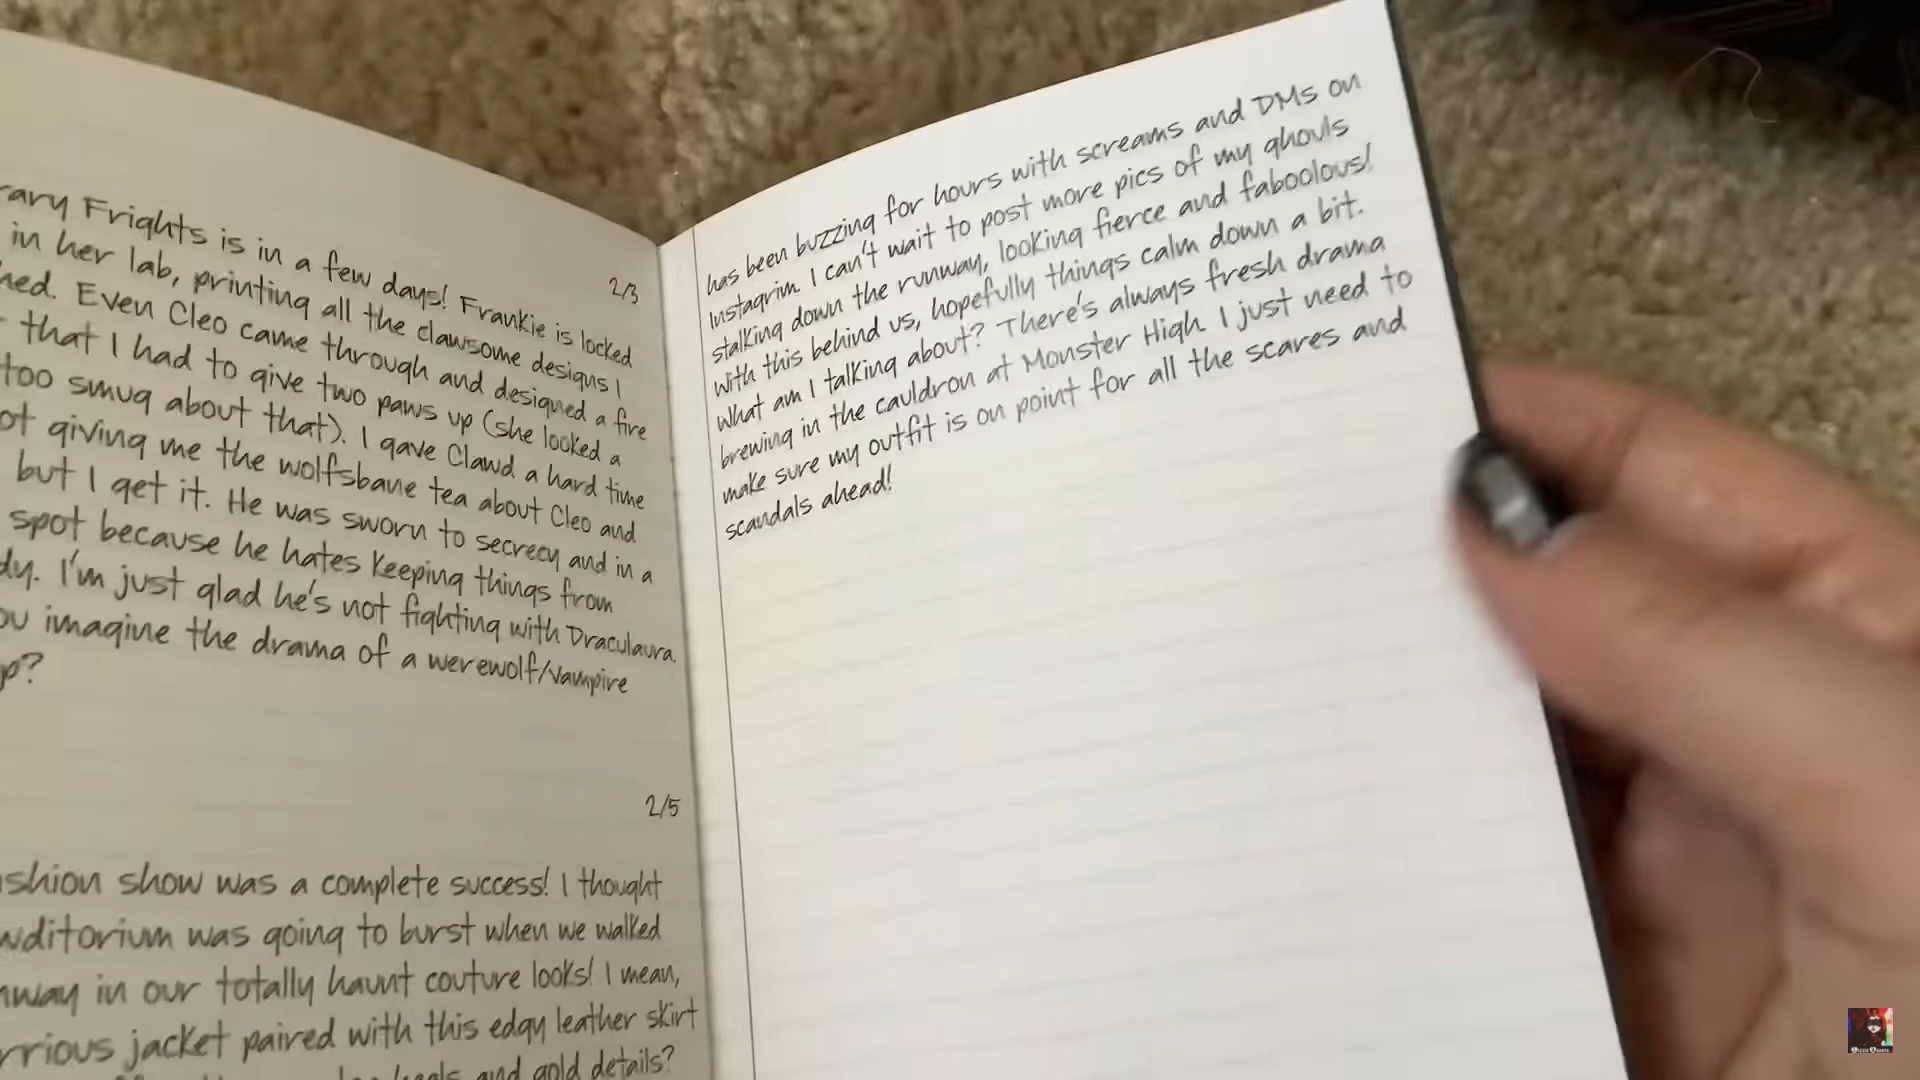 2/3
Frights is in a few days! Frankie is locked
in her lab, printing all the clawsome designs I
Even Cleo came through and designed a fire
that I had to give two paws up (she looked a
too smug about that). I gave Clawd a hard time
giving me the wolfsbane tea about Cleo and
but I get it. He was sworn to secrecy and in a
spot because he hates keeping things from
I'm just glad he's not fighting with Draculaura.
imagine the drama of a werewolf/vampire
2/5
show was a complete success! I thought
was going to burst when we walked
in our totally haunt couture looks! I mean,
jacket paired with this edgy leather skirt
and gold details?
has been buzzing for hours with screams and DMs on
Instagrim. I can't wait to post more pics of my ghouls
stalking down the runway, looking fierce and faboolous!
With this behind us, hopefully things calm down a bit.
What am I talking about? There's always fresh drama
brewing in the cauldron at Monster High. I just need to
make sure my outfit is on point for all the scares and
scandals ahead!